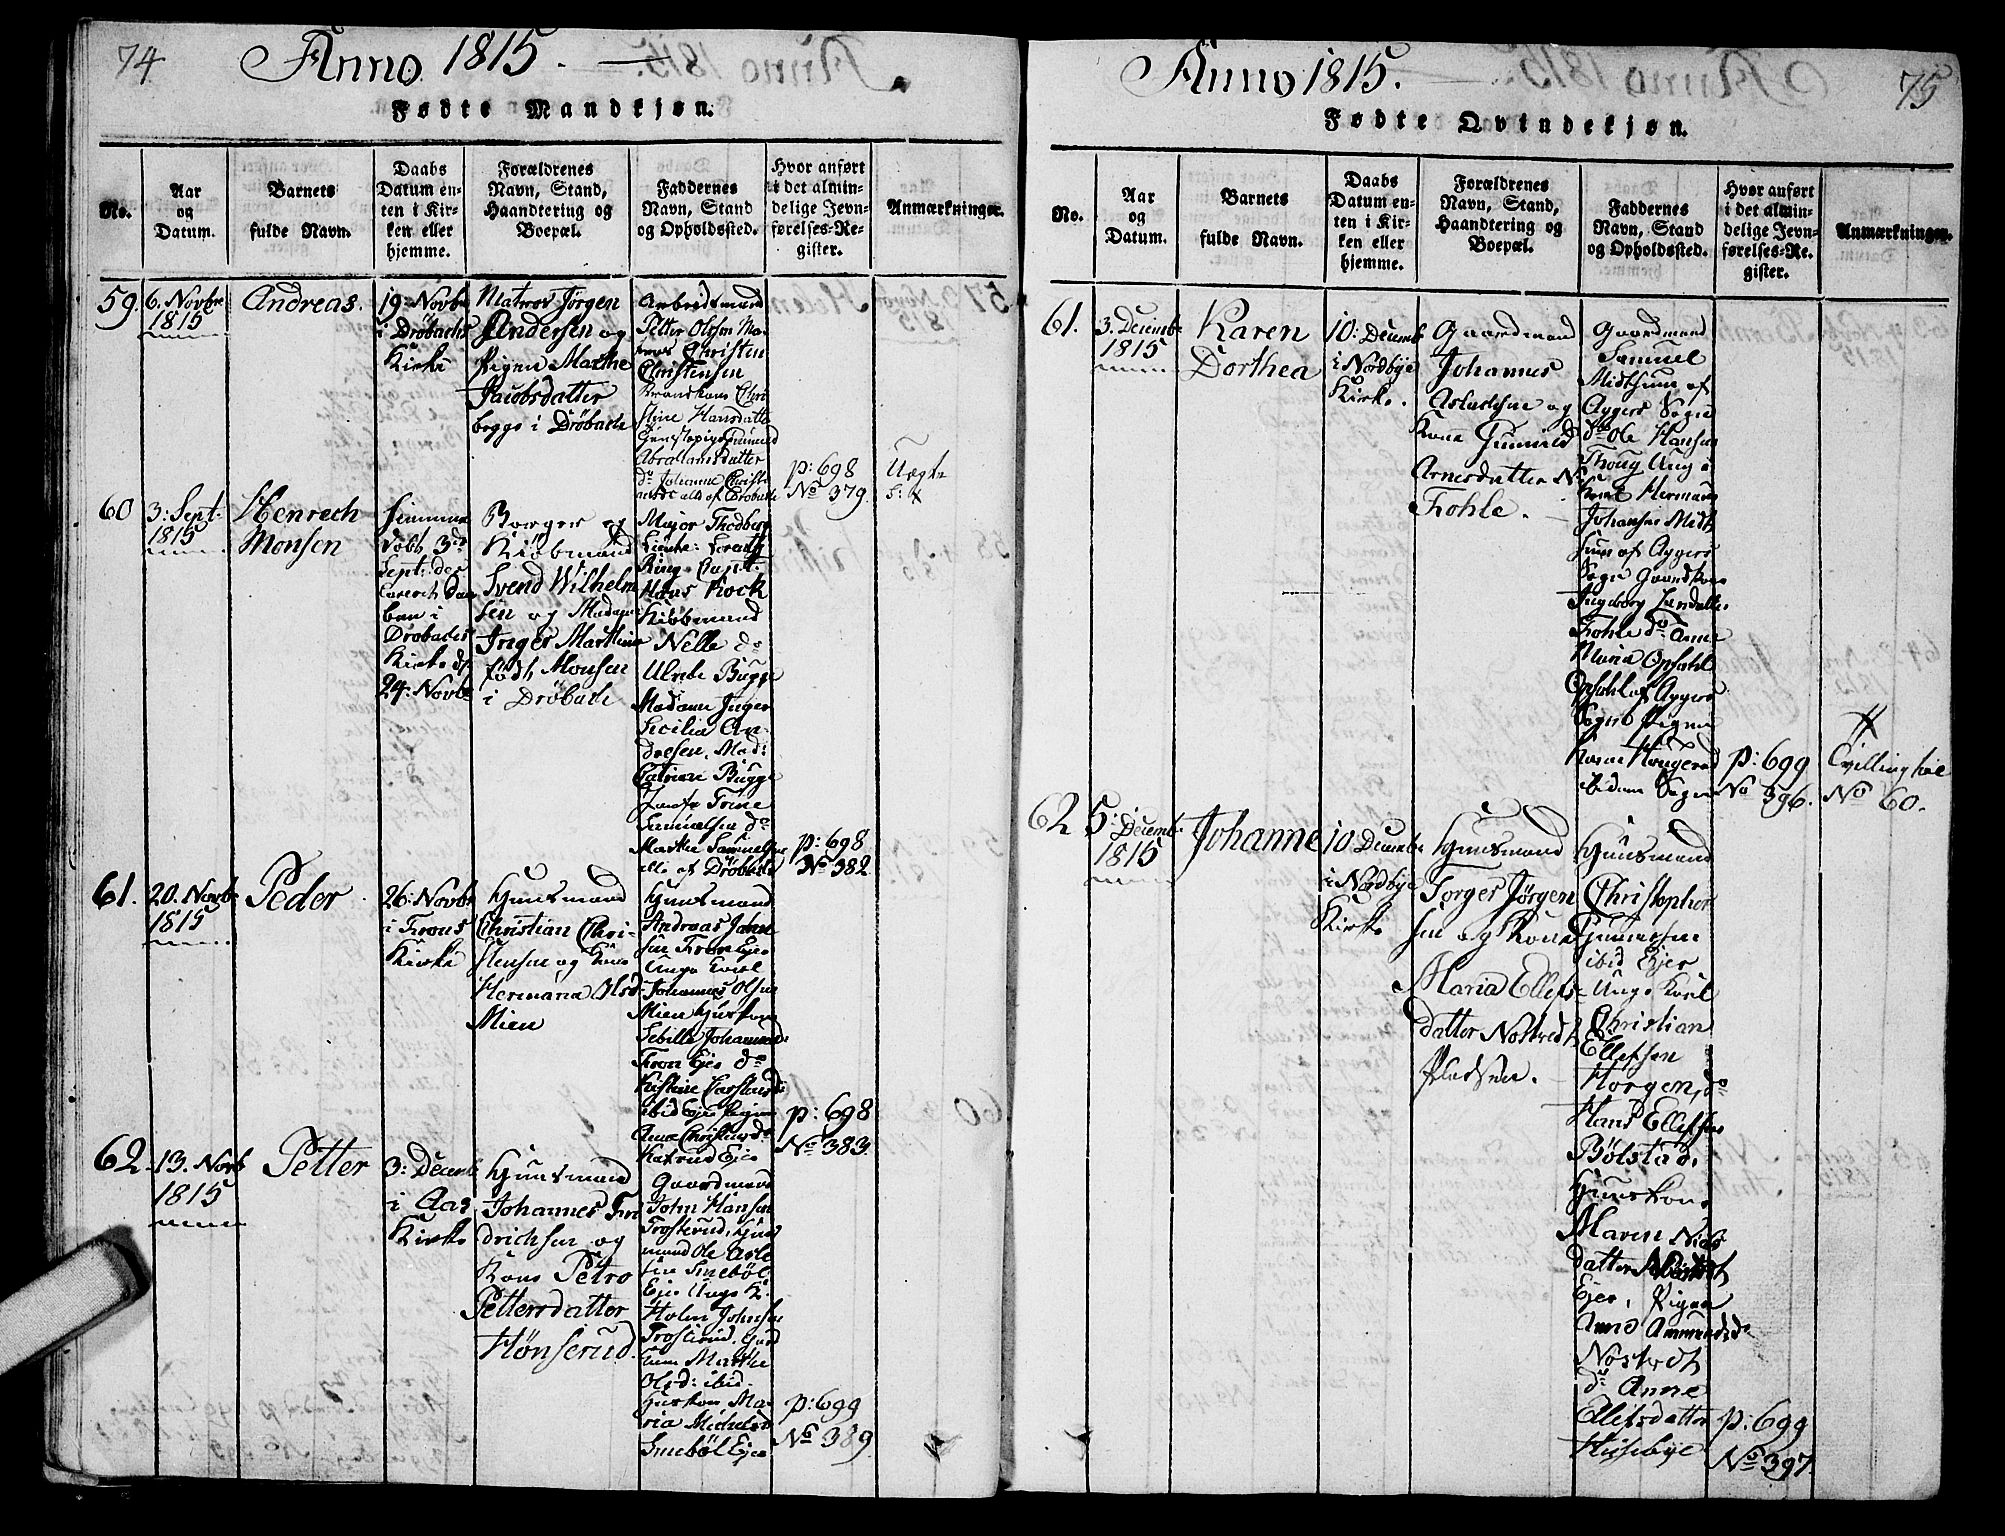 74
Anno 1815.
Fødte Mandkjøn.
No.
Aar
og
Datum.
Barnets
fulde Navn.
Daabs
Datum en-
ten i Kir-
ken eller
hjemme.
Forældrenes
Navn, Stand,
Haandtering og
Boepæl.
Faddernes
Navn, Stand
og Opholdssted.
Hvor anført
i det almin-
delige Jevn-
førelses-Re-
gister.
Anmærkninger.
59.
6. Novbr
1815
Andreas.
19. Novbr
i Drøbachs
Kirke
Matros Jørgen
Andersen og
Pigen Marthe
Jacobsdatter
begge i Drøbach
Arbeidsmand
Petter Olsen Ma-
tros Christen
Christensen
Christine Hansdatter
Abrahamsdatter
do Johanne
alle af Drøbach
p: 698
No 379.
Uægte
60
3. Sept.
1815
Henrech
Monsen
Hjemme
døbt 3de
Sept: des
i
Drøbachs
Kirke d.
24. Novbr
Borger og
Kiøbmand
Svend Wilhelm
sen og Madam
Inger Marthine
født Monsen
i Drøbach
Major Thodberg
Ring Capt:
Hans Kock
Kiøbmand
Nelle do
Ulrik Bugge
Madame Inger
Cicilia An-
dresen, Mad:
Catrine Bugge
Jomfr Trine
Samuelsen do
Marthe Samuelsen
alle af Drøbach
p: 698
No 382.
61.
20. Novbr
1815
Peder
26. Novbr
i Frons
Kirke
Huusmand
Christian Chri-
stensen og Kone
Hermana Olsd.
Mien
Huusmand
Andreas John
sen Fron Eje
Unge Karl
Johannes Olsen
Mien Huuskone
Sebille Johannesd
Fron Eje do
ibid Eje Pigen
Anne Christensd
Eje
p: 698
No 383.
62.
13. Novb
1815
Petter
3. Decemb
i Aas
Kirke
Huusmand
Johannes Fri
drichsen og
Kone Petro
Pettersdatter
Hønserud.
Gaardmand
John Hansen
Frosterud, Huus
mand Ole Asle
sen Smebøl
Eje Unge K.
Holm Johnsen
Frosterud, Gaard
Marthe
Olsd: ibid.
Huuskon Ma
ria Michelsd
Smebøl Eje
p: 699
No 389.
75
Anno 1815.
Fødte Qvindekjøn.
No.
Aar
og
Datum.
Barnets
fulde Navn.
Daabs
Datum en-
ten i Kir-
ken eller
hjemme.
Forældrenes
Navn, Stand,
Haandtering og
Boepæl.
Faddernes
Navn, Stand
og Opholdssted.
Hvor anført
i det almin-
delige Jevn-
førelses-Re-
gister.
Anmærkninger.
61.
3. Decemb.
1815
Karen
Dorthea
10. Decemb
i Nordbye
Kirke.
Gaardmand
Johannes
Aslaksen og
Kone Gunild
Arnesdatter N.
Frohle.
Gaardmand
Samuel
Midtsum af
Aggers Sogn
do Ole Hansen
Karl Herman
Johansen Midt
sum af Aggers
Sogn Gaardkone
Ingeborg
Frohle do Anne
Maria Opsahl
Opsahl af Aggers
Sogn Pigen
Karen Haugerud
ibidem Sogn
p: 699
No 396.
Tvilling til
No 60.
62
5. Decemb.
1815
Johanne
10 Decemb
i Nordbye
Kirke
Huusmand
Torger Jørgen
sen og Kone
Maria Ellefs-
datter Nostvedt
Pladsen.
Huusmand
Christopher
Gunnersen
ibid Ejer
Unge Karl
Christian
Ellefsen
Horgen, do
Hans Ellefsen
Bølstad,
Huuskone
Maren Niels
datter Nostvedt
Eje, Pigen
Anne Ammundsd
Nostvedt
do Anne
Ellefsdatter
Husebye
p: 699
No 397.